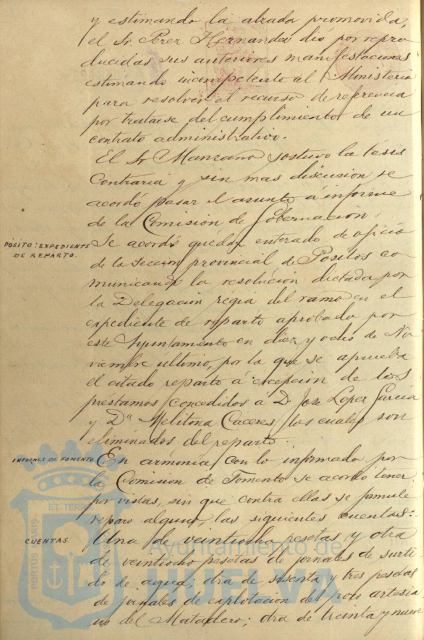 y estimando la alzada promovida,
el Sr Perez Hernandez dió por repro
ducidas sus anteriores manifestaciones
estimando incompetente al Ministerio
para resolver el recurso de referencia
por tratarse del cumplimiento de un
contrato administrativo.
El Sr Manzano sostuvo la tesis
contraria y sin mas discusion se
acordó pasar el asunto á informe
de la Comision de Gobernacion.
POSITO: EXPEDIENTE
DE REPARTO.
Se acordó quedar enterado de oficio
de la Seccion provincial de Positos co
municando la resolucion dictada por
la Delegacion regia del ramo en el
expediente de reparto aprobado por
este Ayuntamiento en diez y ocho de No
viembre último, por la que se aprueba
el citado reparto á excepcion de los
prestamos concedidos á D. Jose Lopez Garcia
y Dª Melitona Caceres, los cuales son
eliminados del reparto.
INFORMES DE FOMENTO
En armonia con lo informado por
la Comision de Fomento se acordó tener
por vistas, sin que contra ellas se formule
reparo alguno, las siguientes cuentas:
CUENTAS.
Una de veintiocho pesetas y otra
de veintiocho pesetas de jornales de surti
do de agua; otra de sesenta y tres pesetas
de jornales de explotacion del pozo artesia
no del Matadero; otra de treinta y nueve
Ayuntamiento de
PORTUS MARIS
ET TERR